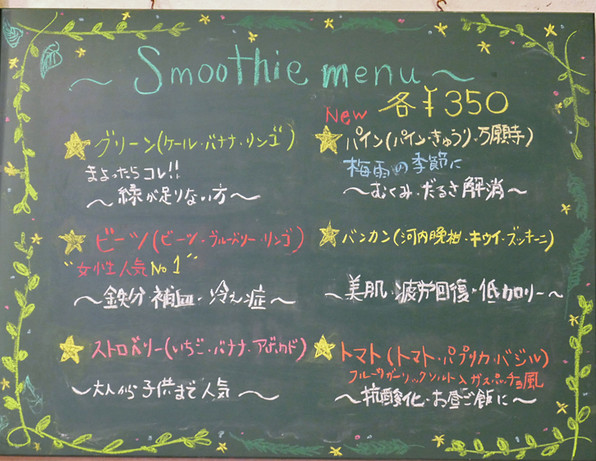 ～ Smoothie menu ～
各￥350
グリーン(ケール・バナナ・リンゴ)
まよったらコレ!!
～緑が足りない方～
New
パイン(パイン・きゅうり・万願寺)
梅雨の季節に
～むくみ・だるさ解消～
ビーツ(ビーツ・ブルーベリー・リンゴ)
"女性人気No1"
～鉄分補血・冷え症～
バンカン(河内晩柑・キウイ・ズッキーニ)
～美肌・疲労回復・低カロリー～
ストロベリー(いちご・バナナ・アボカド)
～大人から子供まで人気～
トマト(トマト・パプリカ・バジル)
フルーツガーリックソルト入ガスパッチョ風
～抗酸化・お昼ご飯に～